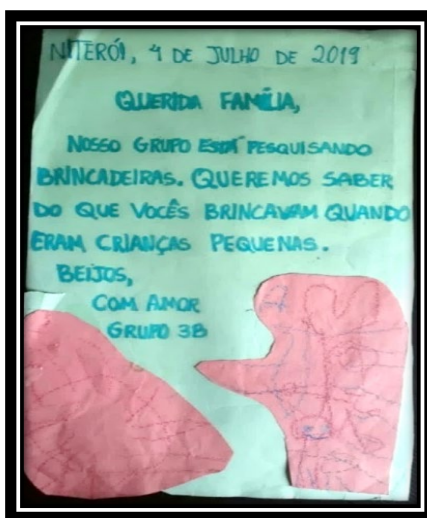 NITERÓI, 4 DE JULHO DE 2019
QUERIDA FAMÍLIA,
NOSSO GRUPO ESTÁ PESQUISANDO
BRINCADEIRAS. QUEREMOS SABER
DO QUE VOCÊS BRINCAVAM QUANDO
ERAM CRIANÇAS PEQUENAS.
BEIJOS,
COM AMOR
GRUPO 3B